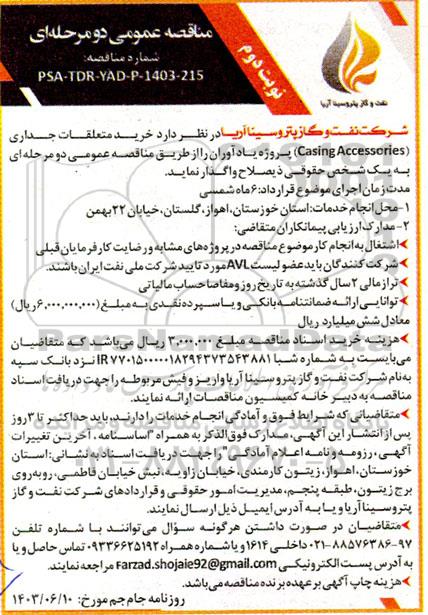 مناقصه عمومی دو مرحله‌ای
شماره مناقصه:
PSA-TDR-YAD-P-1403-215
نوبت دوم
نفت و گاز پتروسینا آریا
شرکت نفت و گاز پتروسینا آریا در نظر دارد خرید متعلقات جداری
(Casing Accessories) پروژه یادآوران را از طریق مناقصه عمومی دو مرحله‌ای
به یک شخص حقوقی ذیصلاح واگذار نماید.
مدت زمان اجرای موضوع قرارداد: ۶ ماه شمسی
۱-محل انجام خدمات: استان خوزستان، اهواز، گلستان، خیابان ۲۲ بهمن
۲-مدارک ارزیابی پیمانکاران متقاضی:
اشتغال به انجام کار موضوع مناقصه در پروژه‌های مشابه و رضایت کارفرمایان قبلی
شرکت کنندگان باید عضو لیست AVL مورد تایید شرکت ملی نفت ایران باشند.
ترازمالی ۲ سال گذشته به تاریخ روز و مفاصا حساب مالیاتی
توانایی ارائه ضمانتنامه بانکی و یا سپرده نقدی به مبلغ (۶،۰۰۰،۰۰۰،۰۰۰ ریال)
معادل شش میلیارد ریال
هزینه خرید اسناد مناقصه مبلغ ۳،۰۰۰،۰۰۰ ریال می‌باشد که متقاضیان
می‌بایست به شماره شبا IR ۷۷۰۱۵۰۰۰۰۰۱۸۲۹۴۳۷۳۵۴۳۸۸۱ نزد بانک سپه
به نام شرکت نفت و گاز پتروسینا آریا واریز و فیش مربوطه را جهت دریافت اسناد
مناقصه به دبیرخانه کمیسیون مناقصات ارائه نمایند.
متقاضیانی که شرایط فوق و آمادگی انجام خدمات را دارند، باید حداکثر تا ۳ روز
پس از انتشار این آگهی، مدارک فوق‌الذکر به همراه "اساسنامه، آخرین تغییرات
آگهی، رزومه و نامه اعلام آمادگی" را جهت دریافت اسناد به نشانی: استان
خوزستان، اهواز، زیتون کارمندی، خیابان زاویه، نبش خیابان فاطمی، روبه‌روی
برج زیتون، طبقه پنجم، مدیریت امور حقوقی و قراردادهای شرکت نفت و گاز
پتروسینا آریا و یا به آدرس ایمیل ذیل ارسال نمایند.
متقاضیان در صورت داشتن هرگونه سؤال می‌توانند با شماره تلفن
۹۷-۸۸۵۷۶۳۸۶-۰۲۱ داخلی ۱۶۱۴ و یا شماره همراه ۰۹۳۳۶۶۲۵۱۹۲ تماس حاصل و یا
به آدرس پست الکترونیکی Farzad.shojaie92@gmail.com مراجعه نمایند.
هزینه چاپ آگهی بر عهده برنده مناقصه می‌باشد.
روزنامه جام جم مورخ: ۱۴۰۳/۰۶/۱۰